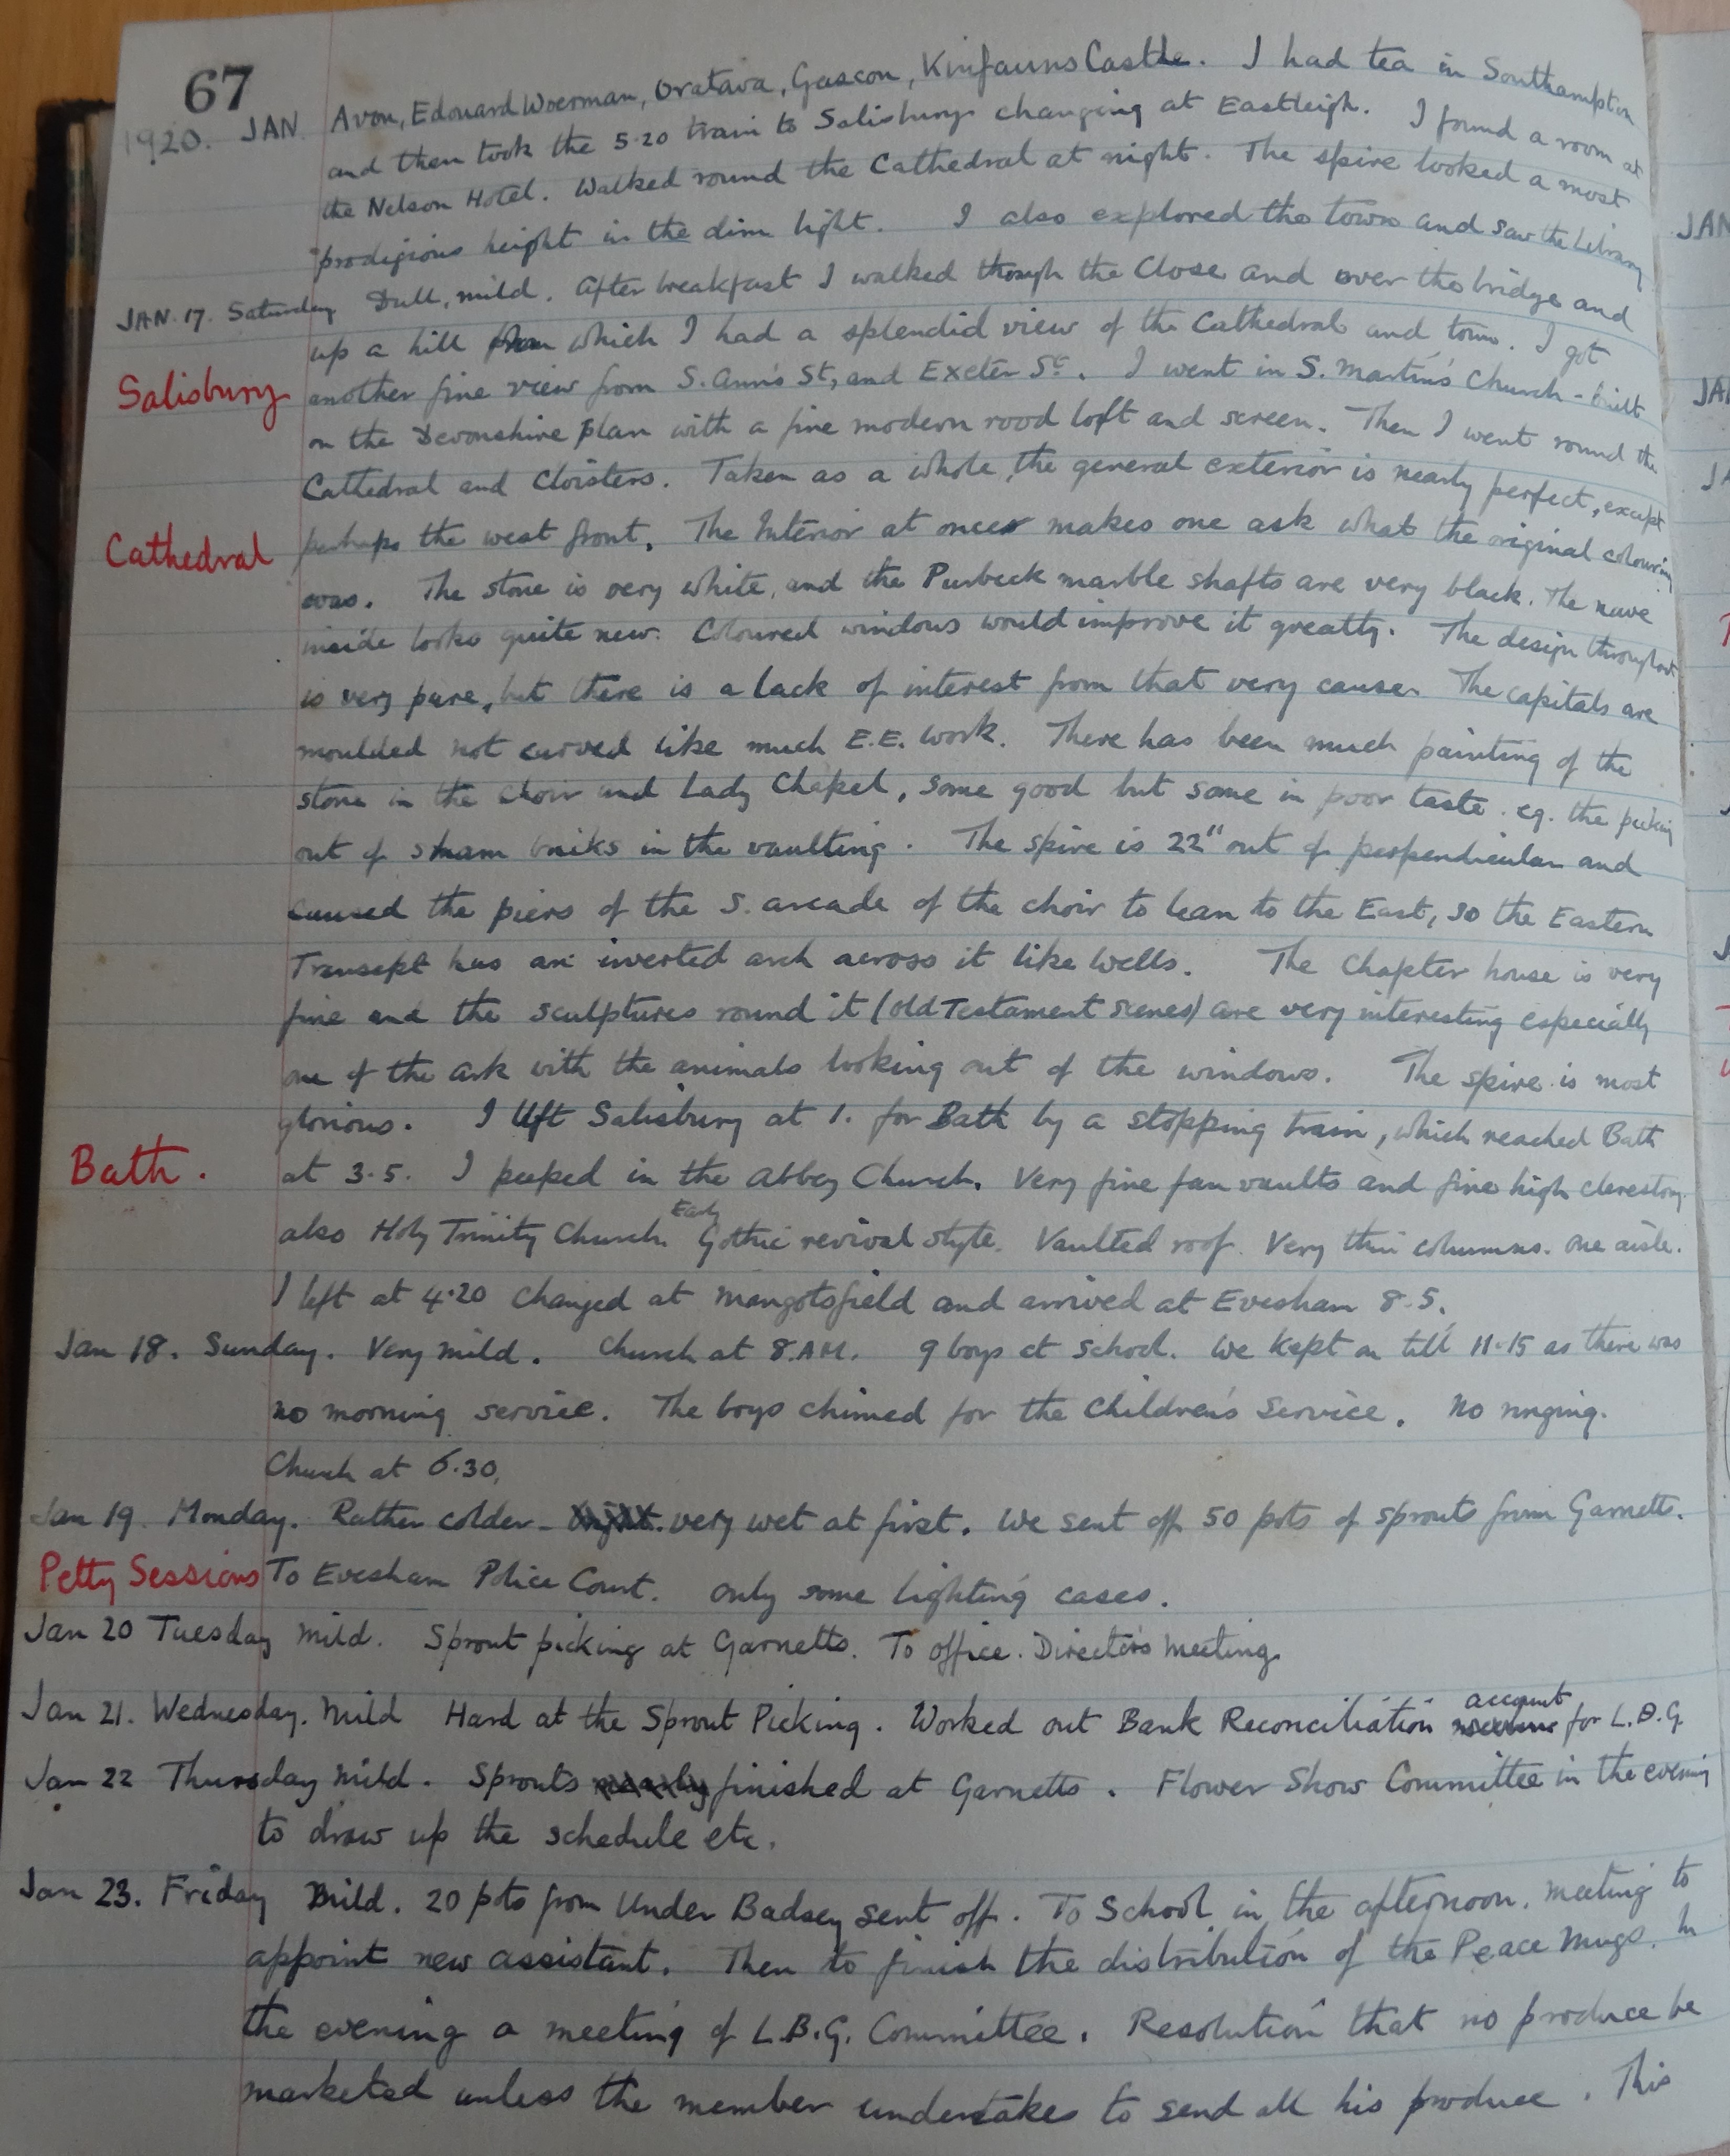 67
1920. JAN. Avon, Edouard Woerman, Oratava, Gascon, Kinfauns Castle. I had tea in Southampton
and then took the 5.20 train to Salisbury changing at Eastleigh. I found a room at
the Nelson Hotel. Walked round the Cathedral at night. The spire looked a most
prodigious height in the dim light. I also explored the town and saw the Library
JAN. 17. Saturday Dull, mild. After breakfast I walked through the Close and over the bridge and
up a hill from which I had a splendid view of the Cathedral and town. I got
Salisbury another fine view from S. Ann's St, and Exeter St. I went in S. Martin's Church - built
on the Devonshire plan with a fine modern rood loft and screen. Then I went round the
Cathedral and Cloisters. Taken as a whole, the general exterior is nearly perfect, except
Cathedral perhaps the west front. The Interior at once makes one ask what the original colouring
was. The stone is very white, and the Purbeck marble shafts are very black. The nave
inside looks quite new. Coloured windows would improve it greatly. The design throughout
is very pure, but there is a lack of interest from that very cause. The capitals are
moulded not curved like much E.E. work. There has been much painting of the
stone in the choir and Lady Chapel, some good but some in poor taste. eg. the picking
out of sham briks in the vaulting. The spire is 22" out of perpendicular and
caused the piers of the S. arcade of the choir to lean to the East, so the Eastern
Transept has an inverted arch across it like Wells. The Chapter house is very
fine and the sculptures round it (Old Testament Scenes) are very interesting especially
one of the ark with the animals looking out of the windows. The spire is most
glorious. I left Salisbury at 1. for Bath by a stopping train, which reached Bath
Bath. at 3.5. I peeped in the Abbey Church. Very fine fan vaults and fine high clerestory.
also Holy Trinity Church. Early Gothic revival style. Vaulted roof. Very thin columns. one aisle.
I left at 4.20 changed at Mangotsfield and arrived at Evesham 8.5.
Jan 18. Sunday. Very mild. Church at 8.AM. 9 boys at School. We kept on till 11.15 as there was
no morning service. The boys chimed for the Children's Service. No ringing.
Church at 6.30.
Jan 19 Monday. Rather colder - very wet at first. We sent off 50 pots of sprouts from Garnetts.
Petty Sessions To Evesham Police Court. Only some lighting cases.
Jan 20 Tuesday Mild. Sprout picking at Garnetts. To office. Director's Meeting
Jan 21. Wednesday. Mild Hard at the Sprout Picking. Worked out Bank Reconciliation account for L.B.G.
Jan 22 Thursday Mild. Sprouts nearly finished at Garnetts. Flower Show Committee in the evening
to draw up the schedule etc.
Jan 23. Friday Mild. 20 pots from Under Badsey sent off. To School in the afternoon. Meeting to
appoint new assistant. Then to finish the distribution of the Peace Mugs. In
the evening a meeting of L.B.G. Committee. Resolution that no produce be
marketed unless the member undertakes to send all his produce. This